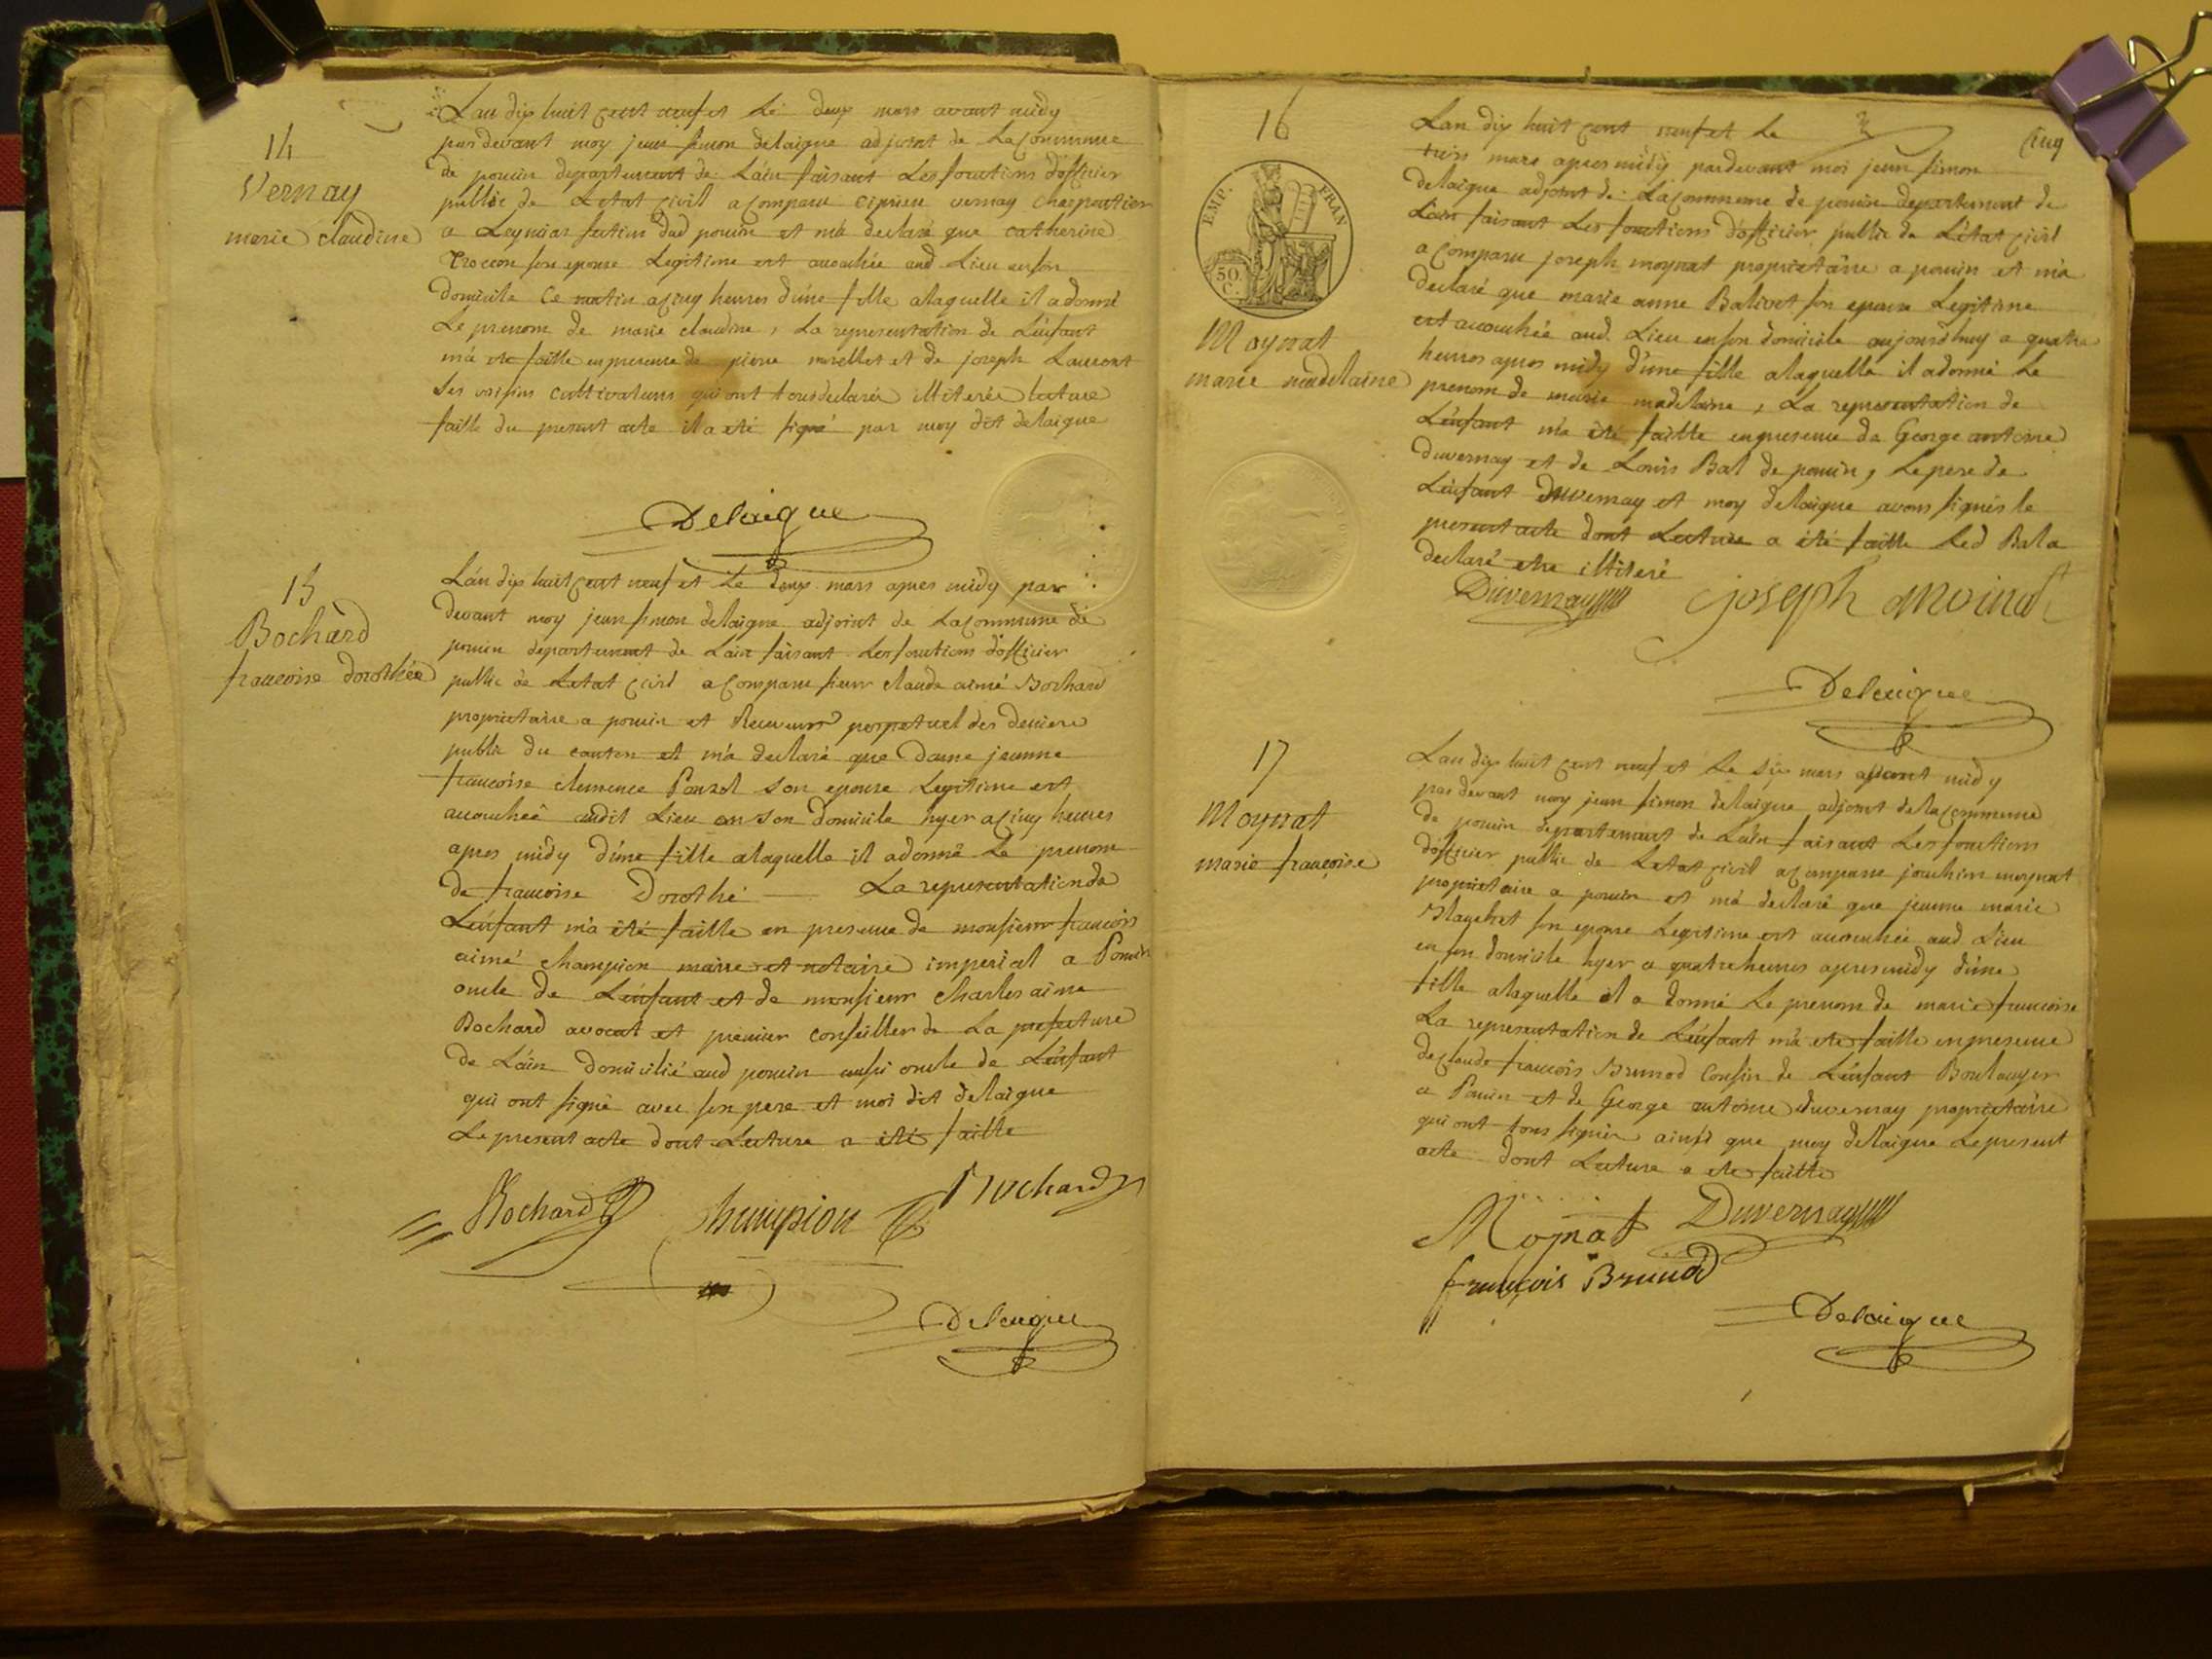 14
Vernay
marie claudine
Lan dix huit cent neuf et Le deux mars avant midy
pardevant moy jean simon delaigue adjoint de La commune
de poncin departement de Láin faisant Les fonctions dófficier
public de Letat civil a comparu ciprien vernay charpentier
a Leymiat section dud poncin et má declaré que catherine
son epouse Legitime est accouchée aud Lieu en son
domicile ce matin a cinq heures dúne fille alaquelle il a donné
Le prenom de marie claudine, La representation de Lénfant
má eté faitte en presence de pierre et de joseph Laurent
Ses voisins cultivateurs qui ont tous declarés illiterés lecture
faitte du present acte il a eté signé par moy dit delaigue
Delaigue
15
Bochard
francoise dorothée
Lán dix huit cent neuf et Le deux mars apres midy par
devant moy jean simon delaigue adjoint de La commune de
poncin departement de Lain faisant Les fonctions dófficier
public de Letat civil a comparu sieur claude aimé Bochard
proprietaire a poncin et Receveur perpetuel des deniers
public du canton et má declaré que Dame jeanne
francoise clemence son epouse Legitime est
accouchée audit Lieu en son domicile hyer a cinq heures
apres midy dúne fille alaquelle il a donné Le prenom
de francoise Dorothé — La representation de
Lénfant má été faitte en presence de monsieur francois
aimé champion maire et notaire imperial a Poncin
oncle de Lénfant et de monsieur charles aime
Bochard avocat et premier conseiller de La prefecture
de Láin domicilié aud poncin aussi oncle de Lénfant
qui ont signé avec son pere et moi dit delaigue
Le present acte dont Lecture a été faitte
Bochard Champion Bochard
Delaigue
16
EMP. FRAN
50 C.
Moynat
marie madelaine
cinq
Lan dix huit cent neuf et Le
trois mars apres midy pardevant moi jean simon
delaigue adjoint de La commune de poncin departement de
Láin faisant Les fonctions dófficier public de Létat civil
a comparu joseph moynat proprietaire a poncin et má
declaré que marie anne Balivet son epouse Legitime
est accouchée aud. Lieu en son domicile aujourdhuy a quatre
heures apres midy dúne fille alaquelle il a donné Le
prenom de marie madelaine, La representation de
Lénfant má été faitte en presence de George antoine
duvernay et de Louis Bal de poncin, Le pere de
Lénfant duvernay et moy delaigue avons signés le
present acte dont Lecture a été faitte Led Bal a
declaré etre illiteré
Duvernay joseph moinat
Delaigue
17
Moynat
marie françoise
Lan dix huit cent neuf et Le six mars avant midy
pardevant moy jean simon delaigue adjoint de la commune
de poncin departement de Láin faisant Les fonctions
dófficier public de Letat civil a comparu joachim moynat
proprietaire a poncin et má declaré que jeanne marie
son epouse Legitime est accouchée aud Lieu
en son domicile hyer a quatre heures apres midy dúne
fille alaquelle il a donné Le prenom de marie francoise
La representation de Lénfant má eté faitte en presence
de claude francois Brunod cousin de Lénfant Boulanger
a Poncin et de George antoine duvernay proprietaire
qui ont tous signés ainsi que moy delaigue Le present
acte dont Lecture a eté faitte
Mojnat Duvernay
françois Brunod
Delaigue